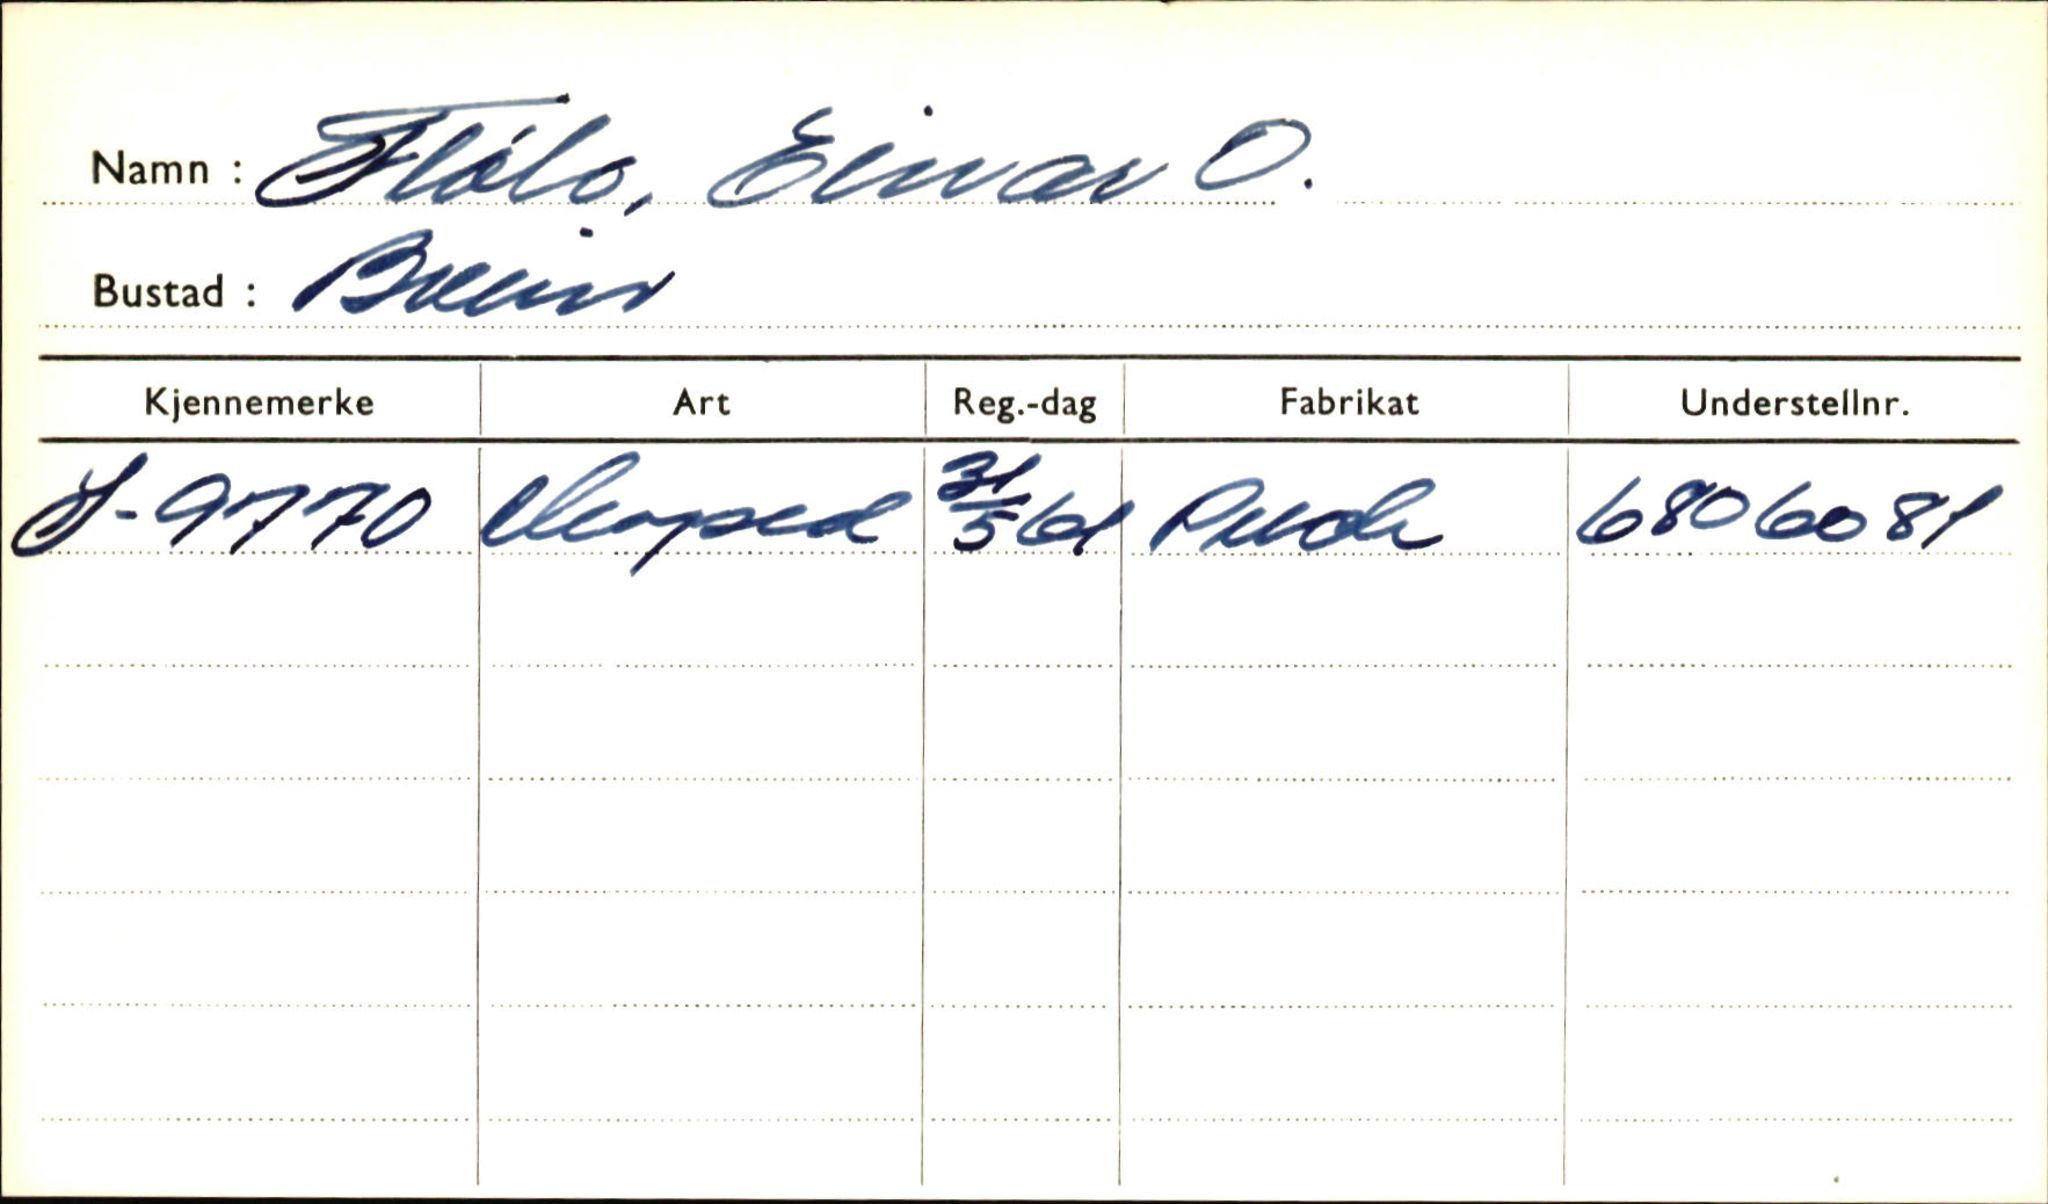 Namn : Flølo, Einar O.
Bustad : Breim
Kjennemerke Art Reg.-dag Fabrikat Understellnr.
S-9770 Moped 31/5 61 Puch 6806081